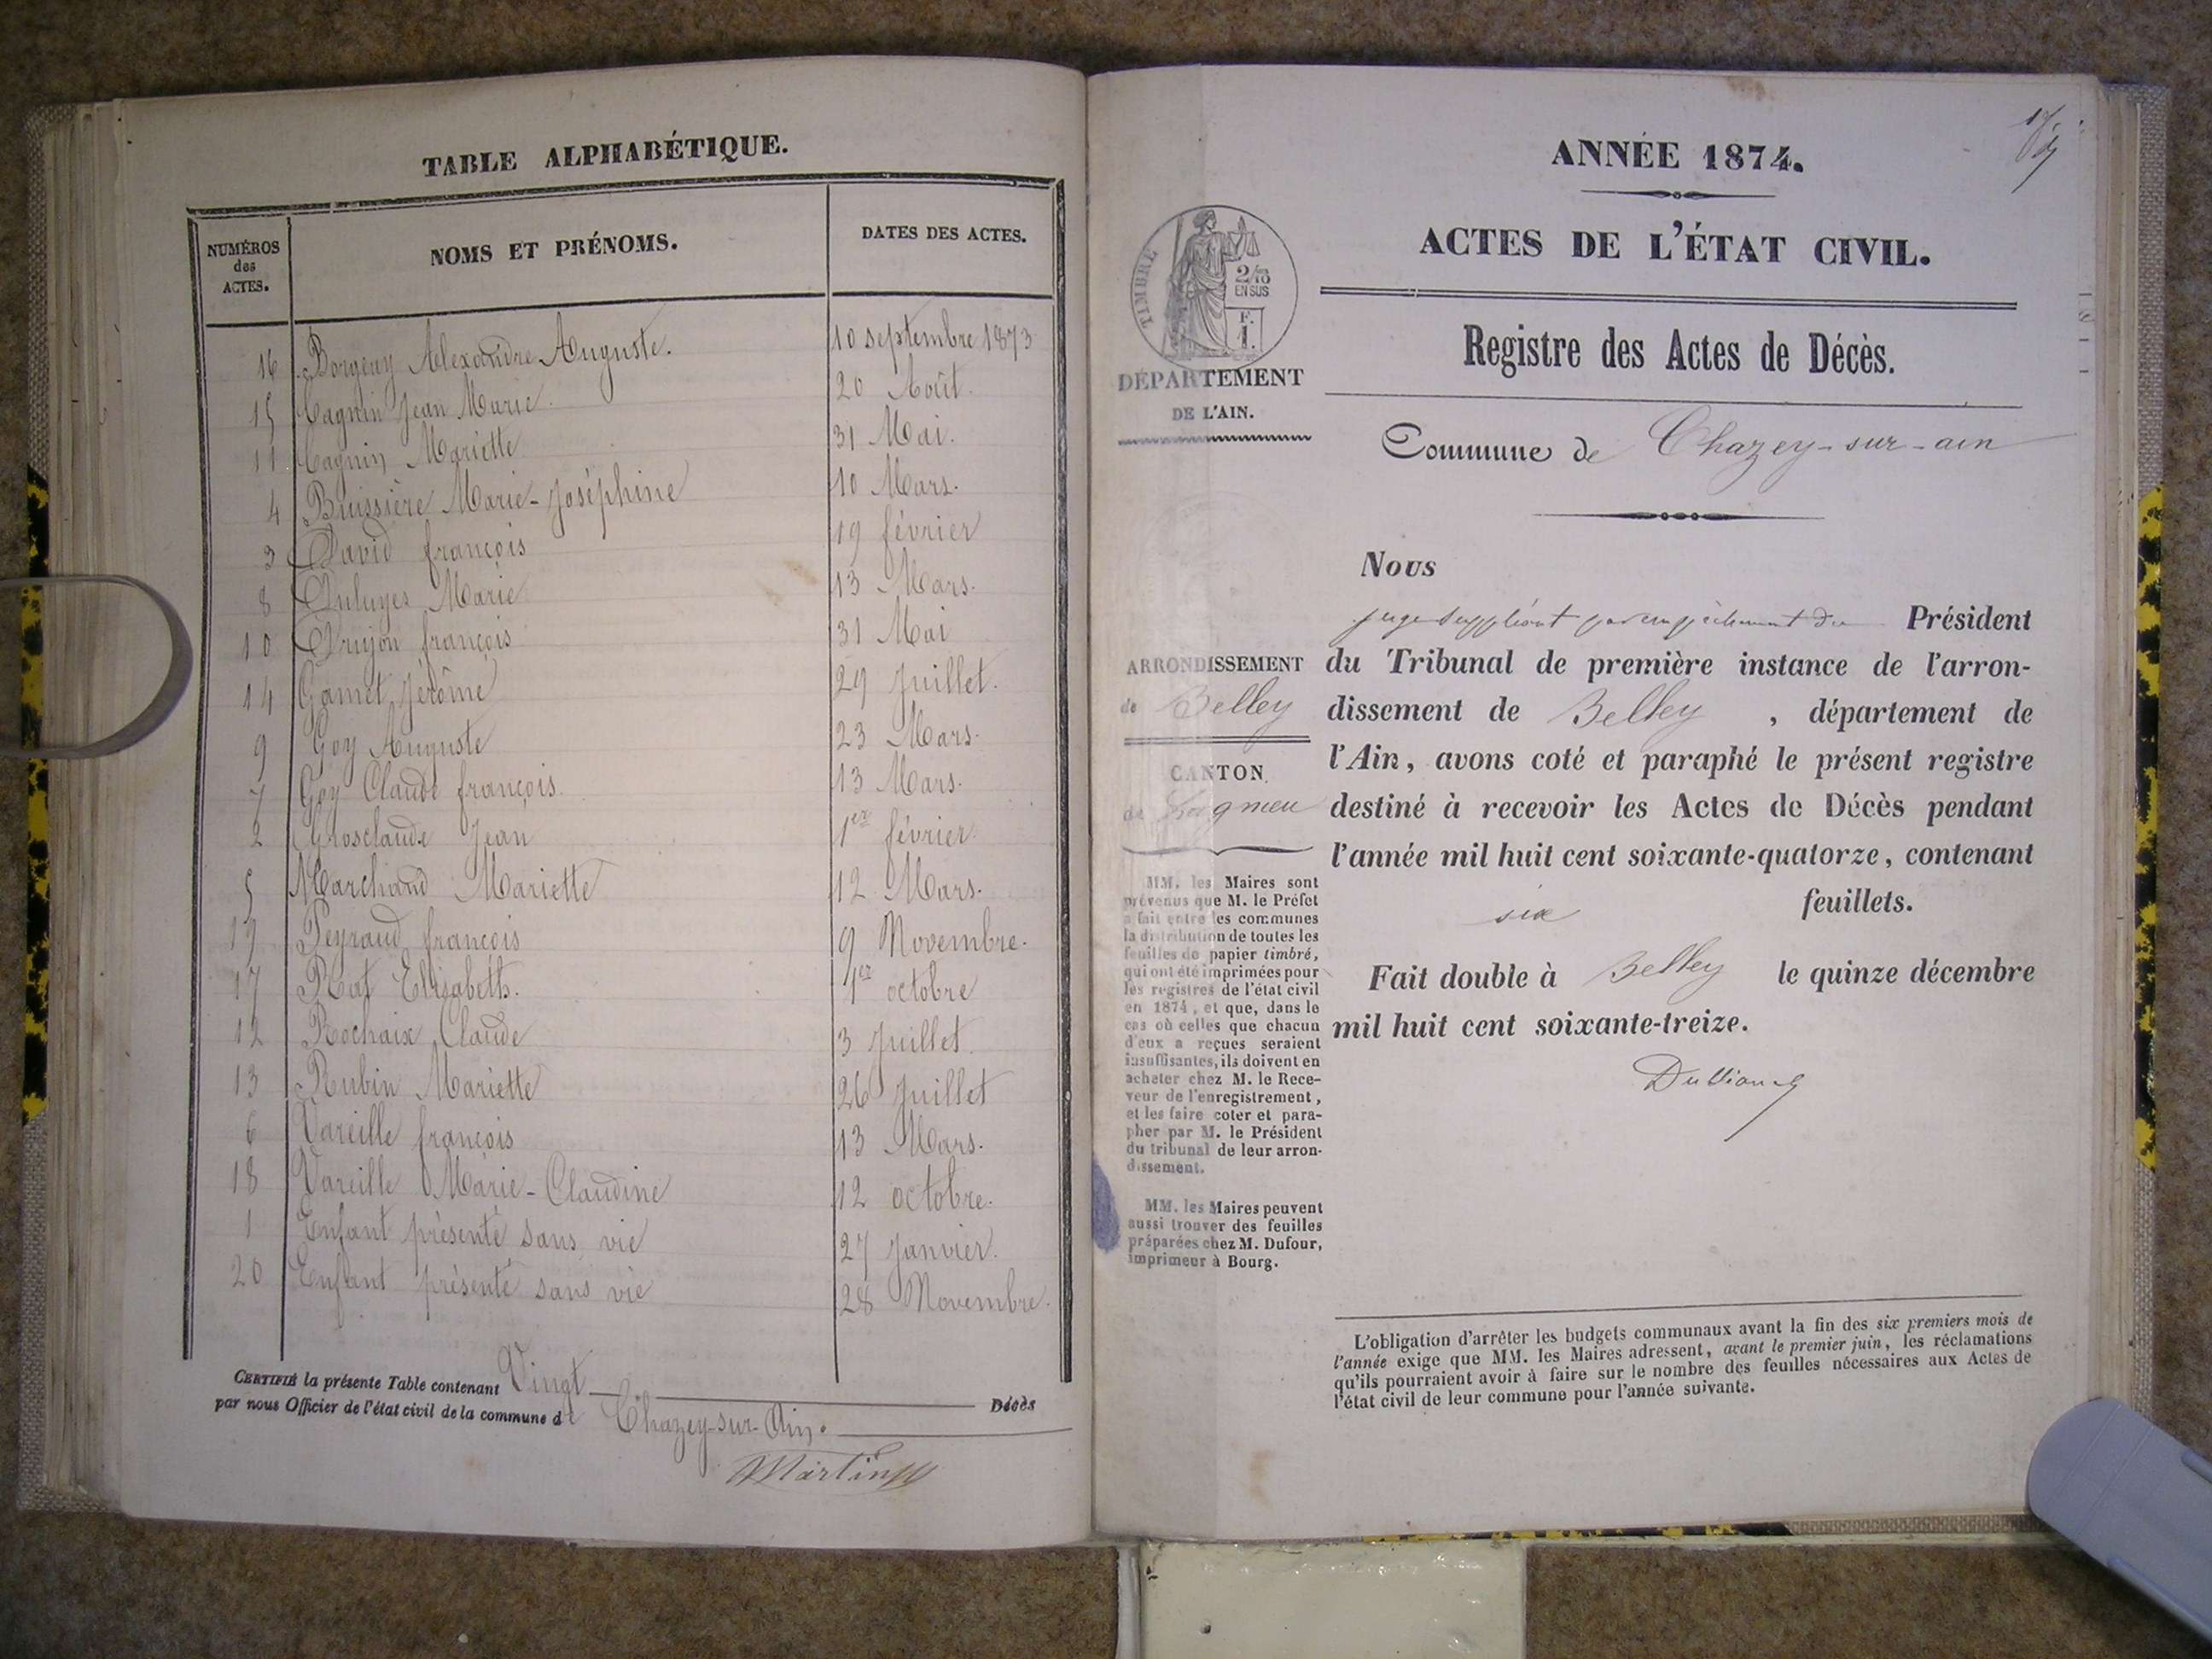 TABLE ALPHABÉTIQUE.
NUMÉROS des ACTES. NOMS ET PRÉNOMS. DATES DES ACTES.
16 Borgeay Alexandre Auguste. 10 septembre 1873
15 Cagnin Jean Marie. 20 Août.
11 Cagnin Mariette 31 Mai.
4 Buissière Marie-Joséphine 10 Mars.
3 David françois 19 février
8 Marie 13 Mars.
10 Drujon françois 31 Mai
14 Gamet Jérôme 29 Juillet.
9 Goy Auguste 23 Mars.
7 Goy Claude françois. 13 Mars.
2 Grosclaude Jean 1er février.
5 Marchand Mariette 12 Mars.
19 Peyraud françois 9 Novembre.
17 Rat Elisabeth. 1er octobre
12 Rochaix Claude 3 Juillet.
13 Rubin Mariette 26 Juillet
6 Vareille françois 13 Mars.
18 Vareille Marie-Claudine 12 octobre.
1 Enfant présenté sans vie 27 Janvier.
20 Enfant présenté sans vie 28 Novembre.
CERTIFIÉ la présente Table contenant Vingt Décès
par nous Officier de l'état civil de la commune de Chazey-sur-Ain.
Martin
ANNÉE 1874.
ACTES DE L'ÉTAT CIVIL.
TIMBRE
2/10
EN SUS
F.
1.
DÉPARTEMENT
DE L'AIN.
Registre des Actes de Décès.
Commune de Chazey-sur-ain
Nous
juge suppléant par empêchement du Président
du Tribunal de première instance de l'arron-
dissement de Belley, département de
l'Ain, avons coté et paraphé le présent registre
destiné à recevoir les Actes de Décès pendant
l'année mil huit cent soixante-quatorze, contenant
six feuillets.
Fait double à Belley le quinze décembre
mil huit cent soixante-treize.
ARRONDISSEMENT
de Belley
CANTON
de Lagnieu
MM. les Maires sont
prévenus que M. le Préfet
a fait entre les communes
la distribution de toutes les
feuilles de papier timbré,
qui ont été imprimées pour
les registres de l'état civil
en 1874, et que, dans le
cas où celles que chacun
d'eux a reçues seraient
insuffisantes, ils doivent en
acheter chez M. le Rece-
veur de l'enregistrement,
et les faire coter et para-
pher par M. le Président
du tribunal de leur arron-
dissement.
MM. les Maires peuvent
aussi trouver des feuilles
préparées chez M. Dufour,
imprimeur à Bourg.
L'obligation d'arrêter les budgets communaux avant la fin des six premiers mois de
l'année exige que MM. les Maires adressent, avant le premier juin, les réclamations
qu'ils pourraient avoir à faire sur le nombre des feuilles nécessaires aux Actes de
l'état civil de leur commune pour l'année suivante.